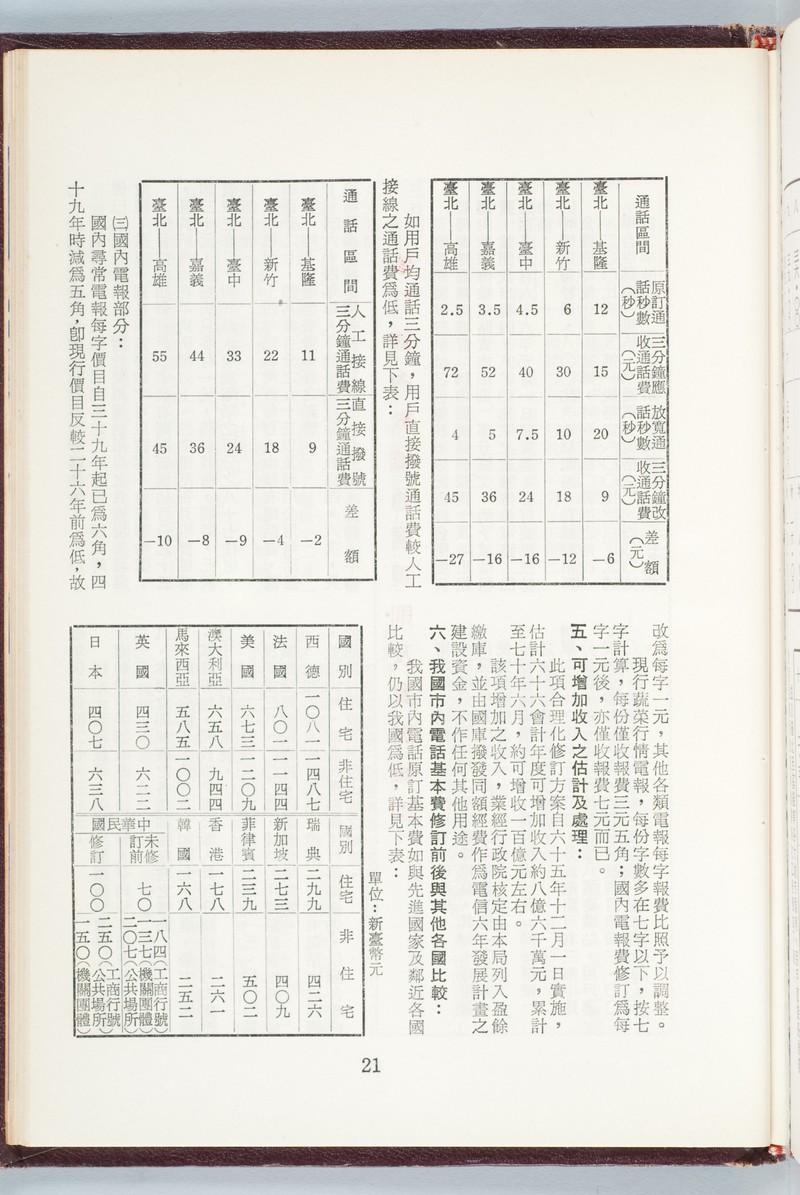 通話區間
原訂通話秒數(秒)
三分鐘應收通話費(元)
放寬通話秒數(秒)
三分鐘改收通話費(元)
差額(元)
臺北——基隆 12 15 20 9 —6
臺北——新竹 6 30 10 18 —12
臺北——臺中 4.5 40 7.5 24 —16
臺北——嘉義 3.5 52 5 36 —16
臺北——高雄 2.5 72 4 45 —27
如用戶均通話三分鐘，用戶直接撥號通話費較人工
接線之通話費爲低，詳見下表：
通話區間
人工接線三分鐘通話費
直接撥號三分鐘通話費
差額
臺北——基隆 11 9 —2
臺北——新竹 22 18 —4
臺北——臺中 33 24 —9
臺北——嘉義 44 36 —8
臺北——高雄 55 45 —10
㈢國內電報部分：
國內尋常電報每字價目自三十九年起已爲六角，四
十九年時減爲五角，卽現行價目反較二十六年前爲低，故
改爲每字一元，其他各類電報每字報費比照予以調整。
現行蔬菜行情電報，每份字數多在七字以下，按七
字計算，每份僅收報費三元五角；國內電報費修訂爲每
字一元後，亦僅收報費七元而已。
五、可增加收入之估計及處理：
此項合理化修訂方案自六十五年十二月一日實施，
估計六十六會計年度可增加收入約八億六千萬元，累計
至七十年六月，約可增收一百億元左右。
該項增加之收入，業經行政院核定由本局列入盈餘
繳庫，並由國庫撥發同額經費作爲電信六年發展計畫之
建設資金，不作任何其他用途。
六、我國市內電話基本費修訂前後與其他各國比較：
我國市內電話原訂基本費如與先進國家及鄰近各國
比較，仍以我國爲低，詳見下表：
單位：新臺幣元
國別 住宅 非住宅 國別 住宅 非住宅
西德 一〇八一 一四八七 瑞典 二九九 四二六
法國 八〇一 一一四四 新加坡 二七三 四〇九
美國 六七三 一二〇九 菲律賓 二三九 五〇二
澳大利亞 六五八 九四四 香港 一七八 二六一
馬來西亞 五八五 一〇〇二 韓國 一六八 二五二
英國 四三〇 六二二 中華民國 未修訂前 七〇 一八四(工商行號) 一三七(機關團體) 二〇七(公共場所)
日本 四〇七 六三八 修訂 一〇〇 二五〇(工商行號)(公共場所) 一五〇(機關團體)
21